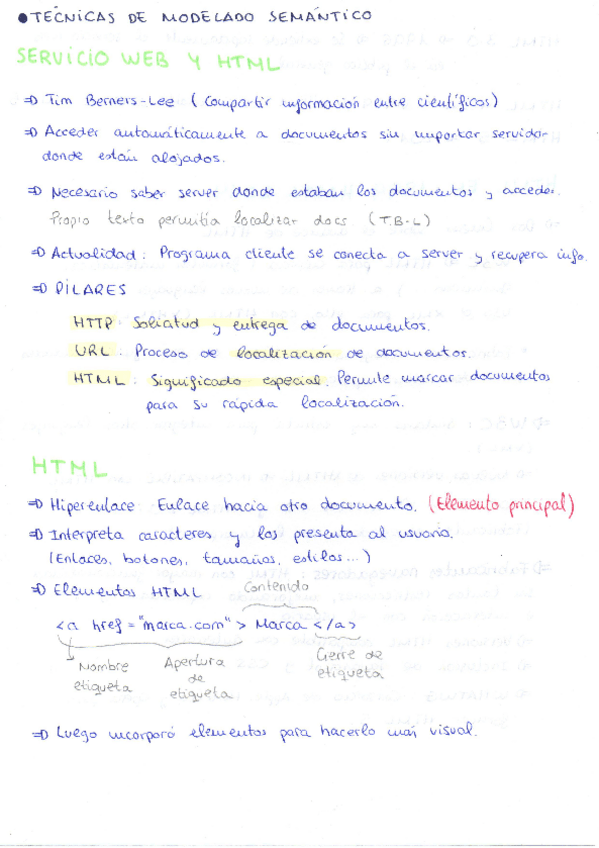 ● TÉCNICAS DE MODELADO SEMÁNTICO
SERVICIO WEB Y HTML
⇒ Tim Berners-Lee (Compartir información entre científicos)
⇒ Acceder automáticamente a documentos sin importar servidor
donde están alojados.
⇒ Necesario saber server donde estaban los documentos y acceder.
Propio texto permitía localizar docs. (T.B-L)
⇒ Actualidad: Programa cliente se conecta a server y recupera info.
⇒ PILARES
HTTP: Solicitud y entrega de documentos.
URL: Proceso de localización de documentos.
HTML: Significado especial. Permite marcar documentos
para su rápida localización.
HTML
⇒ Hiperenlace: Enlace hacia otro documento. (Elemento principal)
⇒ Interpreta caracteres y los presenta al usuario.
(Enlaces, botones, tamaños, estilos...)
⇒ Elementos HTML
Contenido
<a href="marca.com"> Marca </a>
Nombre etiqueta
Apertura de etiqueta
Cierre de etiqueta
⇒ Luego incorporó elementos para hacerlo más visual.